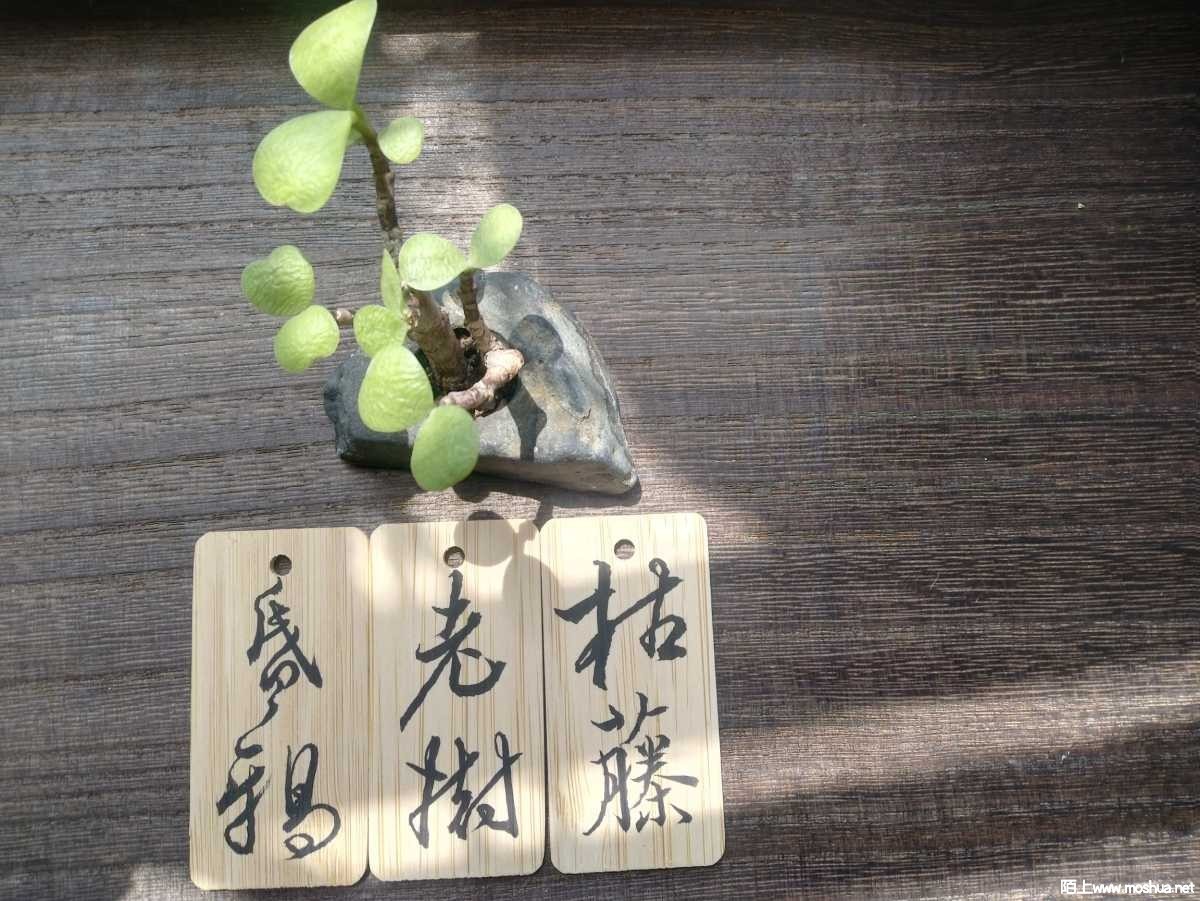 枯藤
老樹
昏鴉
陌上www.moshua.net